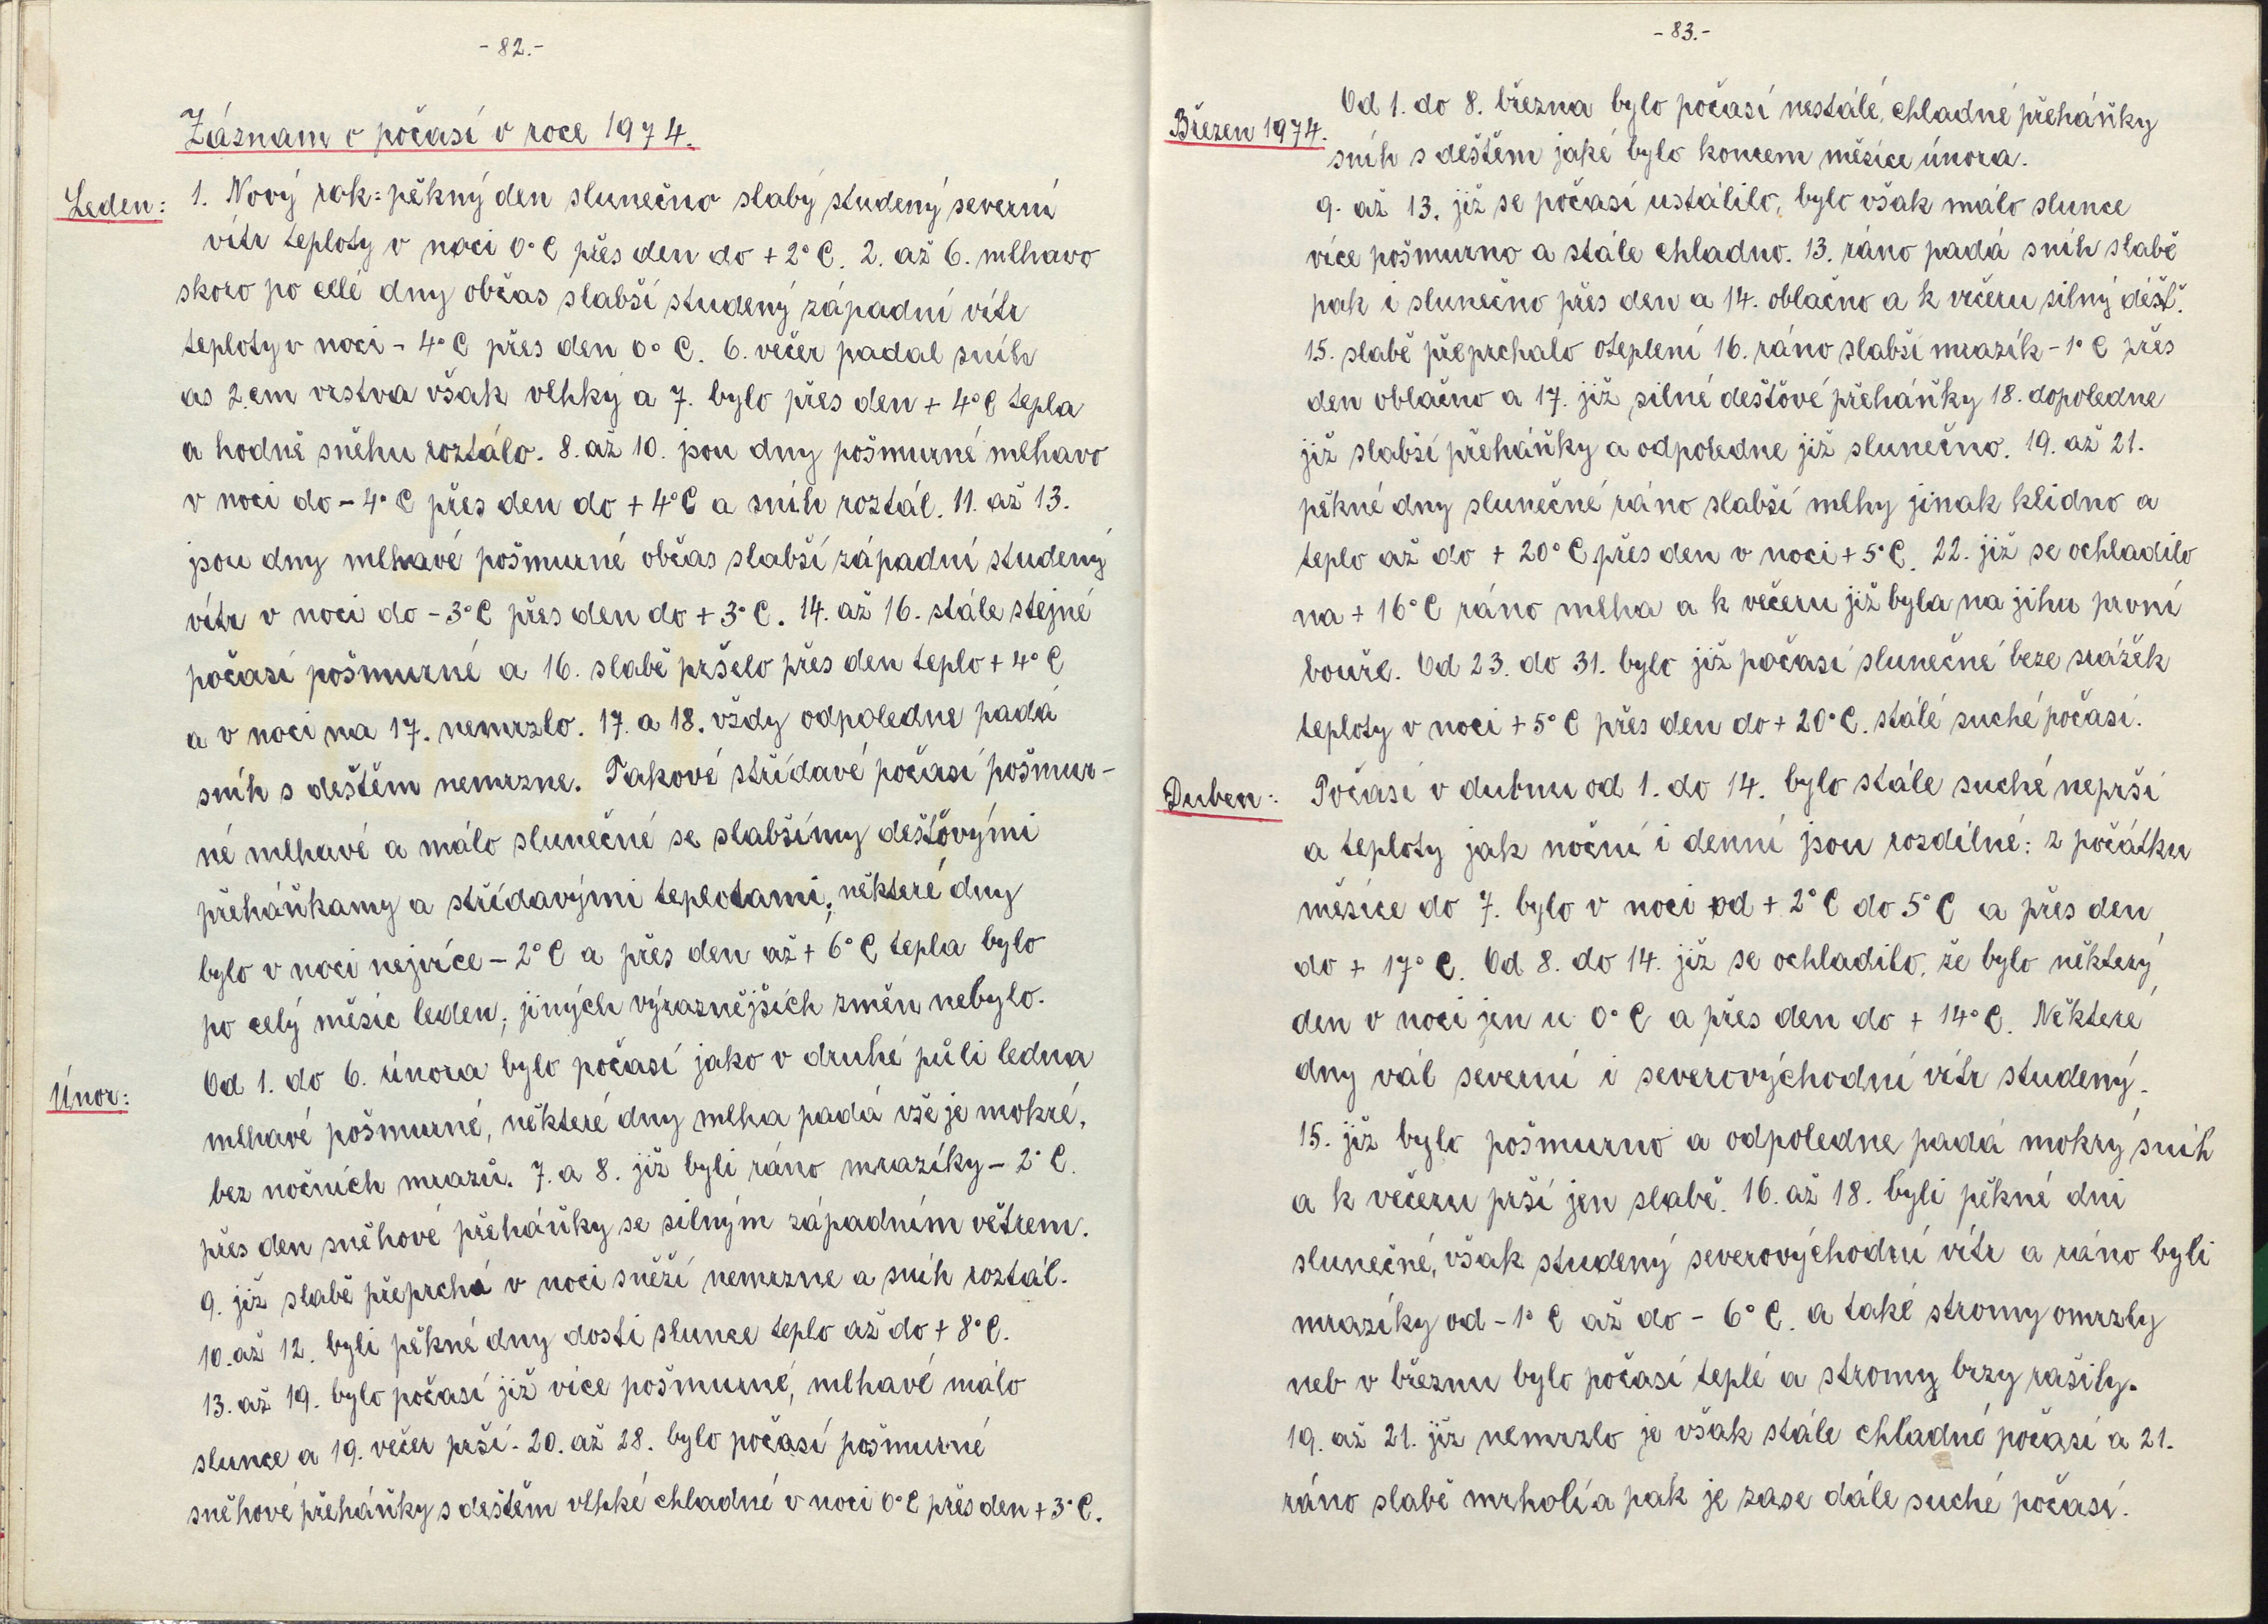 - 82.-
Záznam o počasí v roce 1974.
Leden: 1. Nový rok: pěkný den slunečno slabý studený severní
vítr teploty v noci 0°C přes den do + 2°C. 2. až 6. mlhavo
skoro po cellé dny občas slabší studený západní vítr
teploty v noci - 4°C přes den 0°C. 6. večer padal sníh
as 2.cm vrstva však vlhký a 7. bylo přes den + 4°C tepla
a hodně sněhu roztálo. 8. až 10. jsou dny pošmurné mlhavo
v noci do - 4°C přes den do + 4°C a sníh roztál. 11. až 13.
jsou dny mlhavé pošmurné občas slabší západní studený
vítr v noci do - 3°C přes den do + 3°C. 14. až 16. stále stejné
počasí pošmurné a 16. slabě pršelo přes den teplo + 4°C
a v noci na 17. nemrzlo. 17. a 18. vždy odpoledne padá
sníh s deštěm nemrzne. Takové střídavé počasí pošmur-
né mlhavé a málo slunečné se slabšímy dešťovými
přeháňkamy a střídavými teplotami; některé dny
bylo v noci nejvíce - 2°C a přes den až + 6°C tepla bylo
po celý měsíc leden; jiných výraznějších změn nebylo.
Únor: Od 1. do 6. února bylo počasí jako v druhé půli ledna
mlhavé pošmurné, některé dny mlha padá vše je mokré,
bez nočních mrazů. 7. a 8. již byli ráno mrazíky - 2°C.
přes den sněhové přeháňky se silným západním větrem.
9. již slabě přeprchá v noci sněží nemrzne a sníh roztál.
10. až 12. byli pěkné dny dosti slunce teplo až do + 8°C.
13. až 19. bylo počasí již více pošmurné, mlhavé málo
slunce a 19. večer prší. 20. až 28. bylo počasí pošmurné
sněhové přeháňky s deštěm vlhké chladné v noci 0°C přes den + 3°C.
- 83.-
Březen 1974. Od 1. do 8. března bylo počasí nestálé, chladné přeháňky
sníh s deštěm jaké bylo koncem měsíce února.
9. až 13. již se počasí ustálilo, bylo však málo slunce
více pošmurno a stále chladno. 13. ráno padá sníh slabě
pak i slunečno přes den a 14. oblačno a k večeru silný déšť.
15. slabě přeprchalo oteplení 16. ráno slabší mrazík - 1°C přes
den oblačno a 17. již silné dešťové přeháňky 18. dopoledne
již slabší přeháňky a odpoledne již slunečno. 19. až 21.
pěkné dny slunečné ráno slabší mlhy jinak klidno a
teplo až do + 20°C přes den v noci + 5°C. 22. již se ochladilo
na + 16°C ráno mlha a k večeru již byla na jihu první
bouře. Od 23. do 31. bylo již počasí slunečné beze srážek
teploty v noci + 5°C přes den do + 20°C. stálé suché počasí.
Duben: Počasí v dubnu od 1. do 14. bylo stále suché neprší
a teploty jak noční i denní jsou rozdílné: z počátku
měsíce do 7. bylo v noci od + 2°C do 5°C a přes den
do + 17°C. Od 8. do 14. již se ochladilo, že bylo některý
den v noci jen u 0°C a přes den do + 14°C. Některé
dny vál severní i severovýchodní vítr studený.
15. již bylo pošmurno a odpoledne padá mokrý sníh
a k večeru prší jen slabě. 16. až 18. byli pěkné dni
slunečné, však studený severovýchodní vítr a ráno byli
mrazíky od - 1°C až do - 6°C. a také stromy omrzly
neb v březnu bylo počasí teplé a stromy brzy rašily.
19. až 21. již nemrzlo je však stále chladné počasí a 21.
ráno slabě mrholí a pak je zase dále suché počasí.